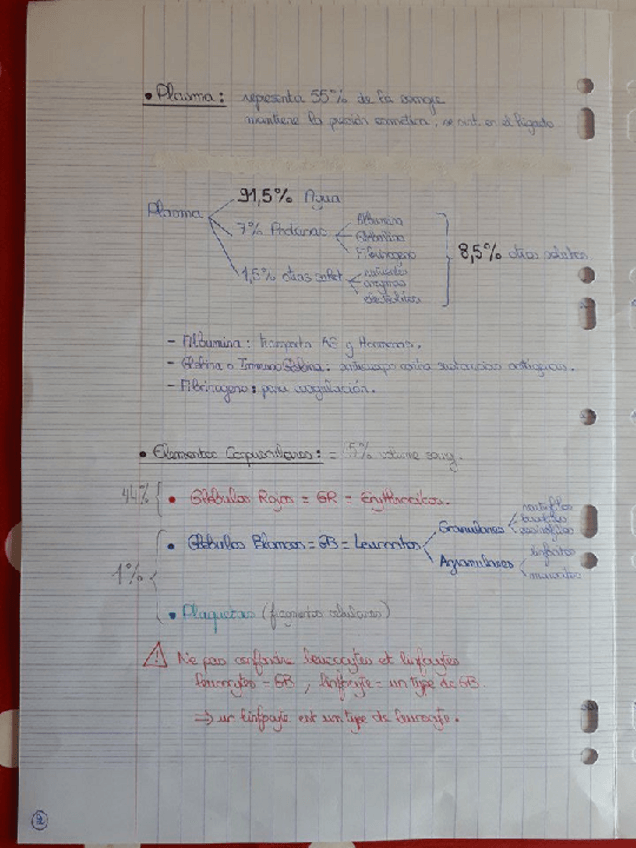 • Plasma : representa 55% de la sangre
mantiene la presión osmótica, se sint. en el hígado
Plasma
91,5% Agua
7% Proteinas
Albumina
Globulina
Fibrinogeno
1,5% otras
nutrientes
enzimas
electrolitos
8,5% otros solutos
- Albumina : transporta AG y Hormonas.
- Globina o ImmunoGlobina : anticuerpo contra sustancias antigenicas.
- Fibrinogeno : para coagulación.
• Elementos Corpusculares : = 45% volume sang.
44%
• Glóbulos Rojos = GR = Erythrocitos.
1%
• Glóbulos Blancos = GB = Leucocitos
Granulares
neutrofilos
basofilos
eosinofilos
Agranulares
linfocitos
monocitos
• Plaquetas (fragmentos celulares)
! Ne pas confondre leucocytes et linfocytes
leucocytes = GB , linfocyte = un type de GB
=> un linfocyte est un type de leucocyte.